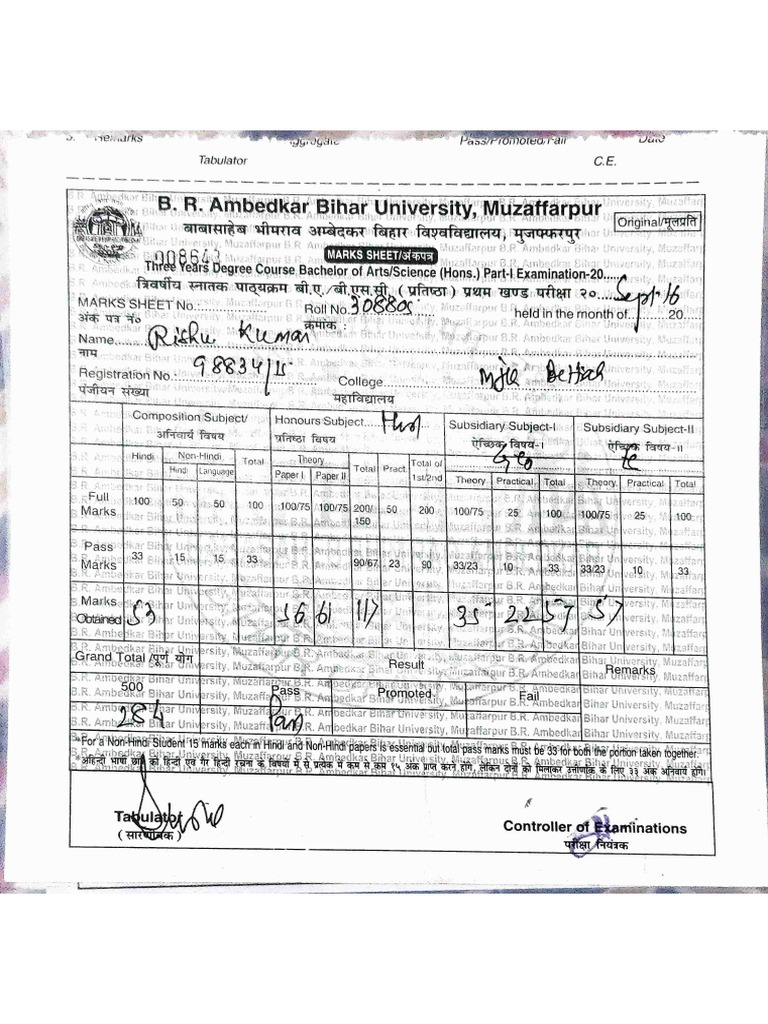 3. Remarks Aggregate Pass/Promoted/Fail Date
Tabulator C.E.
B. R. Ambedkar Bihar University, Muzaffarpur
Original/मूलप्रति
बाबासाहेब भीमराव अम्बेदकर बिहार विश्वविद्यालय, मुजफ्फरपुर
008643 MARKS SHEET/अंकपत्र
Three Years Degree Course Bachelor of Arts/Science (Hons.) Part-I Examination-20.....
त्रिवर्षीय स्नातक पाठ्यक्रम बी.ए./बी.एस.सी. ( प्रतिष्ठा ) प्रथम खण्ड परीक्षा २०..... Sept-16
MARKS SHEET No............. Roll No. 30880 held in the month of........20.....
अंक पत्र नं० क्रमांक :
Name...... Rishu Kumar
नाम
Registration No.- 98834/15 College MJK Bettiah
पंजीयन संख्या महाविद्यालय
Composition Subject/ Honours Subject...... Subsidiary Subject-I Subsidiary Subject-II
अनिवार्य विषय प्रतिष्ठा विषय ऐच्छिक विषय-I ऐच्छिक विषय-II
Geo
Hindi Non-Hindi Total Theory Total Pract. Total of 1st/2nd
Hindi Language Paper I Paper II Theory Practical Total Theory. Practical Total
Full Marks 100 50 50 100 100/75 100/75 200/150 50 200 100/75 25 100 100/75 25 100
Pass Marks 33 15 15 33 90/67 23 90 33/23 10 33 33/23 10 33
Marks Obtained 53 56 61 117 35 22 57 57
Grand Total /पूर्ण योग Result Remarks
500 Pass Promoted Fail
284 Pass
*For a Non-Hindi Student 15 marks each in Hindi and Non-Hindi papers is essential but total pass marks must be 33 for both the portion taken together.
*अहिन्दी भाषा छात्र को हिन्दी एवं गैर हिन्दी रचना के विषयों में से प्रत्येक में कम से कम १५ अंक प्राप्त करने होंगे, लेकिन दोनों को मिलाकर उत्तीर्णांक के लिए ३३ अंक अनिवार्य होंगे।
Tabulator Controller of Examinations
( सारणीयक ) परीक्षा नियंत्रक